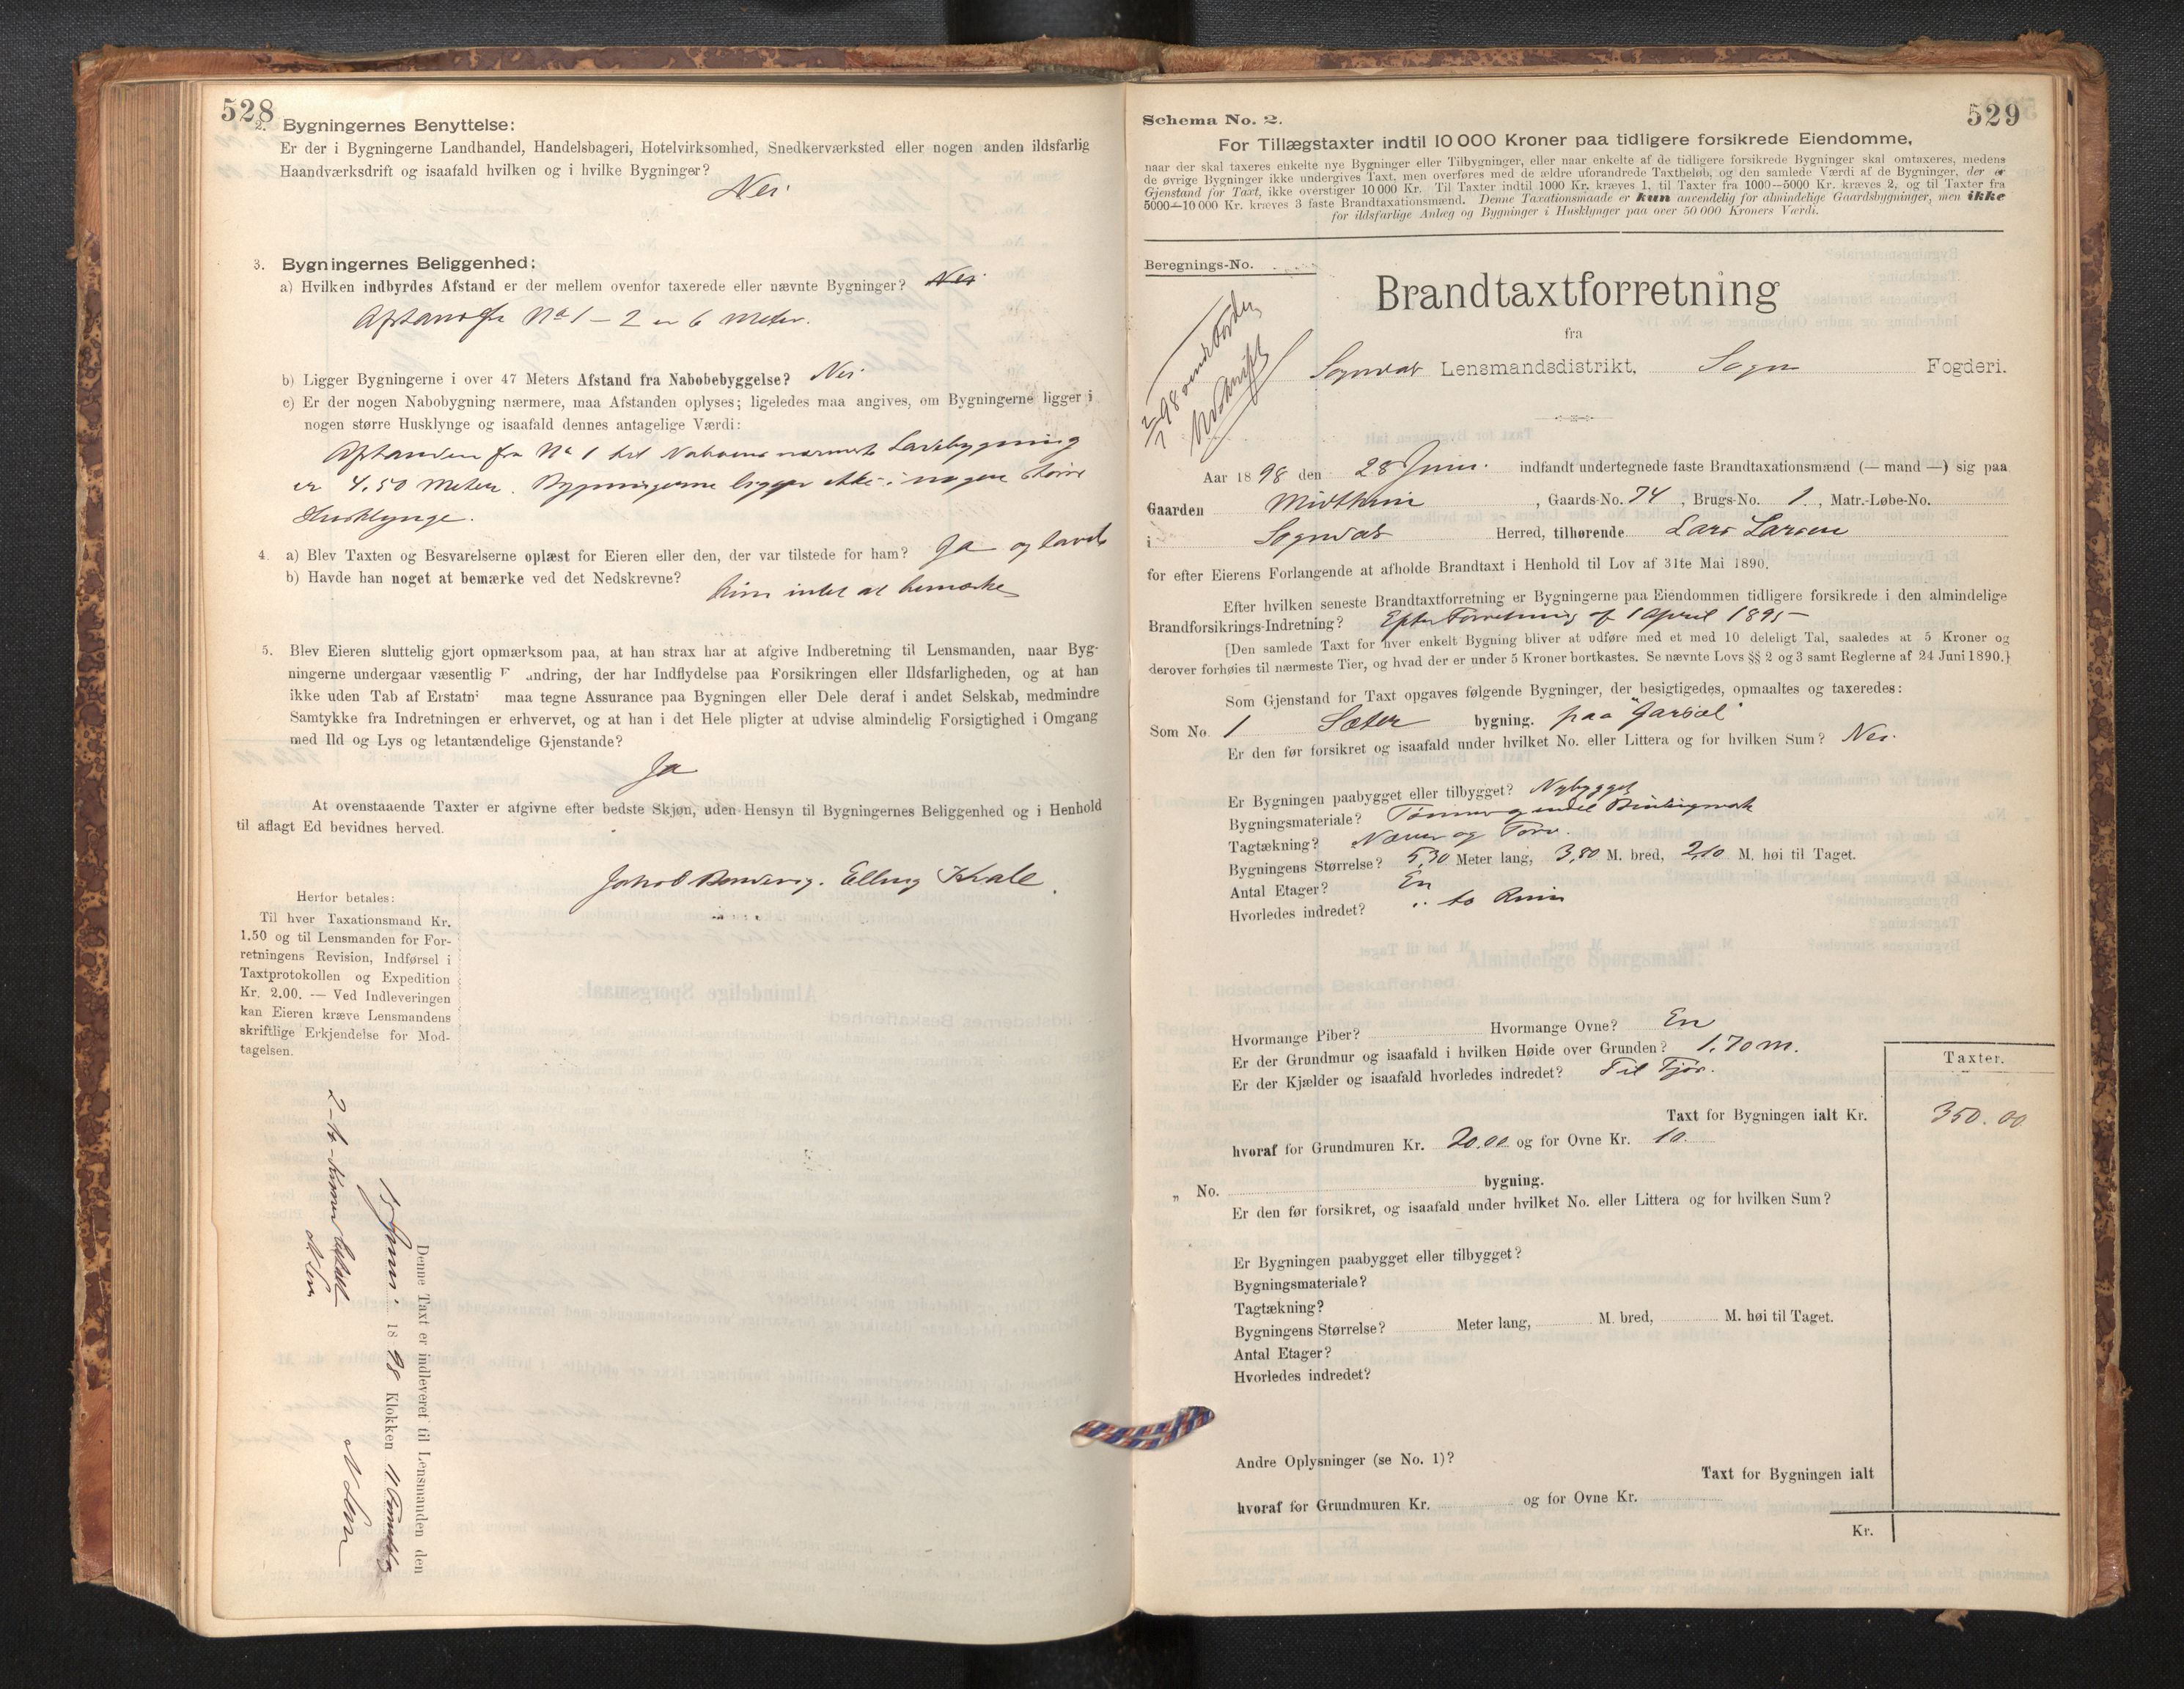 528
2. Bygningernes Benyttelse:
Er der i Bygningerne Landhandel, Handelsbageri, Hotelvirksomhed, Snedkerværksted eller nogen anden ildsfarlig
Haandværksdrift og isaafald hvilken og i hvilke Bygninger?
Nei
3. Bygningernes Beliggenhed:
a) Hvilken indbyrdes Afstand er der mellem ovenfor taxerede eller nævnte Bygninger? Nei
No 1 – 2 er 6 Meter.
b) Ligger Bygningerne i over 47 Meters Afstand fra Nabobebyggelse? Nei
c) Er der nogen Nabobygning nærmere, maa Afstanden oplyses; ligeledes maa angives, om Bygningerne ligger i
nogen større Husklynge og isaafald dennes antagelige Værdi:
Afstanden fra No 1 til Naboens nærmeste Ladebygning
er 4.50 Meter. Bygningerne ligger ikke i nogen større
Husklynge.
4. a) Blev Taxten og Besvarelserne oplæst for Eieren eller den, der var tilstede for ham? Ja og havde
b) Havde han noget at bemærke ved det Nedskrevne? intet at bemærke
5. Blev Eieren sluttelig gjort opmærksom paa, at han strax har at afgive Indberetning til Lensmanden, naar Byg-
ningerne undergaar væsentlig F andring, der har Indflydelse paa Forsikringen eller Ildsfarligheden, og at han
ikke uden Tab af Erstatn maa tegne Assurance paa Bygningen eller Dele deraf i andet Selskab, medmindre
Samtykke fra Indretningen er erhvervet, og at han i det Hele pligter at udvise almindelig Forsigtighed i Omgang
med Ild og Lys og letantændelige Gjenstande?
Ja
At ovenstaaende Taxter er afgivne efter bedste Skjøn, uden Hensyn til Bygningernes Beliggenhed og i Henhold
til aflagt Ed bevidnes herved.
Elling Kvale
Herfor betales:
Til hver Taxationsmand Kr.
1.50 og til Lensmanden for For-
retningens Revision, Indførsel i
Taxtprotokollen og Expedition
Kr. 2.00. — Ved Indleveringen
kan Eieren kræve Lensmandens
skriftlige Erkjendelse for Mod-
tagelsen.
Denne Taxt er indleveret til Lensmanden den
Juni 1898 Klokken 11 Formiddag
529
Schema No. 2.
For Tillægstaxter indtil 10 000 Kroner paa tidligere forsikrede Eiendomme,
naar der skal taxeres enkelte nye Bygninger eller Tilbygninger, eller naar enkelte af de tidligere forsikrede Bygninger skal omtaxeres, medens
de øvrige Bygninger ikke undergives Taxt, men overføres med de ældre uforandrede Taxtbeløb, og den samlede Værdi af de Bygninger, der er
Gjenstand for Taxt, ikke overstiger 10 000 Kr. Til Taxter indtil 1000 Kr. kræves 1, til Taxter fra 1000—5000 Kr. kræves 2, og til Taxter fra
5000—10 000 Kr. kræves 3 faste Brandtaxationsmænd. Denne Taxationsmaade er kun anvendelig for almindelige Gaardsbygninger, men ikke
for ildsfarlige Anlæg og Bygninger i Husklynger paa over 50 000 Kroners Værdi.
Beregnings-No.
Brandtaxtforretning
fra
Sogndal Lensmandsdistrikt, Sogn Fogderi.
Aar 1898 den 28 Juni. indfandt undertegnede faste Brandtaxationsmænd (— mand —) sig paa
Gaarden , Gaards-No. 74, Brugs-No. 1, Matr.-Løbe-No.
i Sogndal Herred, tilhørende Lars Larsen
for efter Eierens Forlangende at afholde Brandtaxt i Henhold til Lov af 31te Mai 1890.
Efter hvilken seneste Brandtaxtforretning er Bygningerne paa Eiendommen tidligere forsikrede i den almindelige
Brandforsikrings-Indretning? Efter Forretning af 1 April 1895
[Den samlede Taxt for hver enkelt Bygning bliver at udføre med et med 10 deleligt Tal, saaledes at 5 Kroner og
derover forhøies til nærmeste Tier, og hvad der er under 5 Kroner bortkastes. Se nævnte Lovs §§ 2 og 3 samt Reglerne af 24 Juni 1890.]
Som Gjenstand for Taxt opgaves følgende Bygninger, der besigtigedes, opmaaltes og taxeredes:
Som No. 1 Sæter bygning. paa
Er den før forsikret og isaafald under hvilket No. eller Littera og for hvilken Sum? Nei.
Er Bygningen paabygget eller tilbygget? Nybygget
Bygningsmateriale? Tømmer og Bindingsværk
Tagtækning? Næver og Torv.
Bygningens Størrelse? 5,30 Meter lang, 3,80 M. bred, 2,10 M. høi til Taget.
Antal Etager? En
Hvorledes indredet? to Rum
Hvormange Piber? Hvormange Ovne? En
Er der Grundmur og isaafald i hvilken Høide over Grunden? 1,70 m.
Er der Kjælder og isaafald hvorledes indredet? Til Fjøs.
Taxter.
Taxt for Bygningen ialt Kr. 350.00
hvoraf for Grundmuren Kr. 20.00 og for Ovne Kr. 10.
„ No. bygning.
Er den før forsikret, og isaafald under hvilket No. eller Littera og for hvilken Sum?
Er Bygningen paabygget eller tilbygget?
Bygningsmateriale?
Tagtækning?
Bygningens Størrelse? Meter lang, M. bred, M. høi til Taget.
Antal Etager?
Hvorledes indredet?
Andre Oplysninger (se No. 1)?
Taxt for Bygningen ialt
hvoraf for Grundmuren Kr. og for Ovne Kr.
Kr.